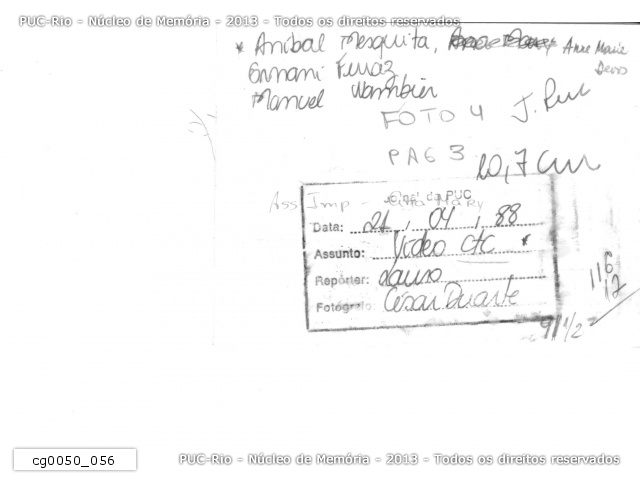 PUC-Rio - Núcleo de Memória - 2013 - Todos os direitos reservados
* Anibal Mesquita, Anne Marie
Ernani Ferraz Deiro
Manuel Wambier
FOTO 4 J. PUC
PAG 3 10,7 cm
Ass Imp -
Jornal da PUC
Data: 21 / 04 / 88
Assunto: Video CTC *
Repórter: Laura
Fotógrafo: Cesar Duarte
116
17
91 1/2
cg0050_056
PUC-Rio - Núcleo de Memória - 2013 - Todos os direitos reservados